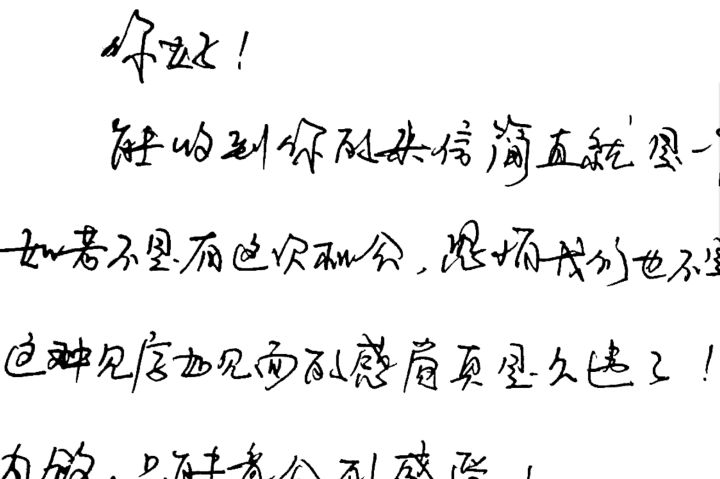 你好！
能收到你的来信简直就是一
如若不是有这次机会，恐怕我们也不是
这种见字如见面的感觉真是久违了！
力的，只能意会的感觉！